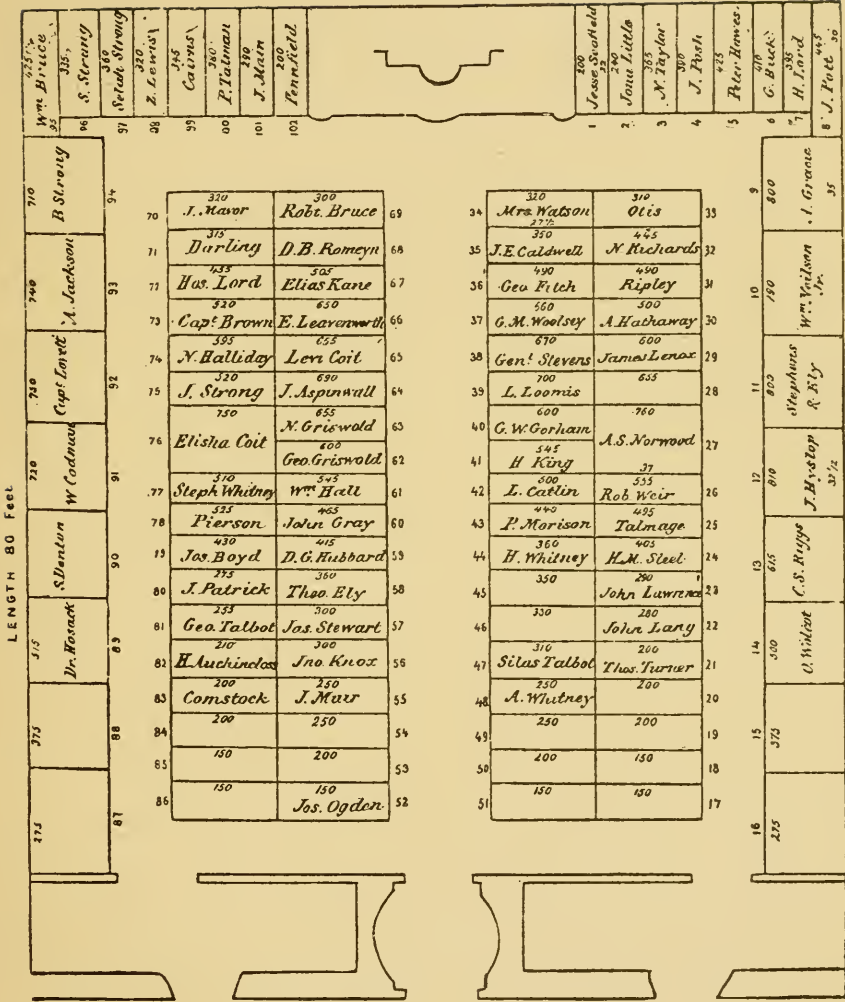 425 Wm Bruce 95
335 S. Strong 96
360 Selah Strong 97
320 Z. Lewis 98
345 Cairns 99
360 P. Talman 00
290 J. Main 101
200 Pennfield 102
200 Jesse Scofield 1
240 Jona Little 2
365 N. Taylor 3
390 J. Post 4
425 Peter Hawes 5
410 G. Buck 6
395 H. Lord 7
445 J. Pott 30 8
710 B Strong 94
740 A. Jackson 93
750 Capt Lovett 92
720 W Codman 91
S. Denton 90
515 Dr. Hosack 89
375 88
275 87
LENGTH 80 Feet
70 320 J. Mavor
300 Robt. Bruce 69
71 315 Darling
D.B. Romeyn 68
72 455 Hos. Lord
505 Elias Kane 67
73 520 Capt Brown
650 E. Leavenworth 66
74 595 N. Halliday
655 Levi Coit 65
75 520 J. Strong
690 J. Aspinwall 64
76 750 Elisha Coit
655 N. Griswold 63
600 Geo. Griswold 62
77 510 Steph Whitney
545 Wm Hall 61
78 525 Pierson
465 John Gray 60
79 430 Jos. Boyd
415 D.G. Hubbard 59
80 275 J. Patrick
360 Theo. Ely 58
81 255 Geo. Talbot
300 Jas. Stewart 57
82 210 H. Auchincloss
300 Jno. Knox 56
83 200 Comstock
250 J. Muir 55
84 200
250 54
85 150
200 53
86 150
150 Jos. Ogden 52
34 320 Mrs. Watson 27½
310 Otis 33
35 350 J.E. Caldwell
445 N Richards 32
36 490 Geo Fitch
490 Ripley 31
37 560 G.M. Woolsey
500 A. Hathaway 30
38 670 Genl Stevens
600 James Lenox 29
39 700 L. Loomis
655 28
40 600 G.W. Gorham
760 A.S. Norwood 37 27
41 545 H King
42 500 L. Catlin
555 Rob Weir 26
43 440 P. Morison
495 Talmage 25
44 360 H. Whitney
405 H.M. Steel 24
45 350
290 John Lawrence 23
46 330
280 John Lang 22
47 310 Silas Talbot
200 Thos. Turner 21
48 250 A. Whitney
200 20
49 250
200 19
50 200
150 18
51 150
150 17
9 800 A. Gracie 35
10 Wm Neilson Jr.
11 800 Stephens R. Ely
12 810 J. Hyslop 32½
13 615 C.S. Riggs
14 500
15 375
16 275